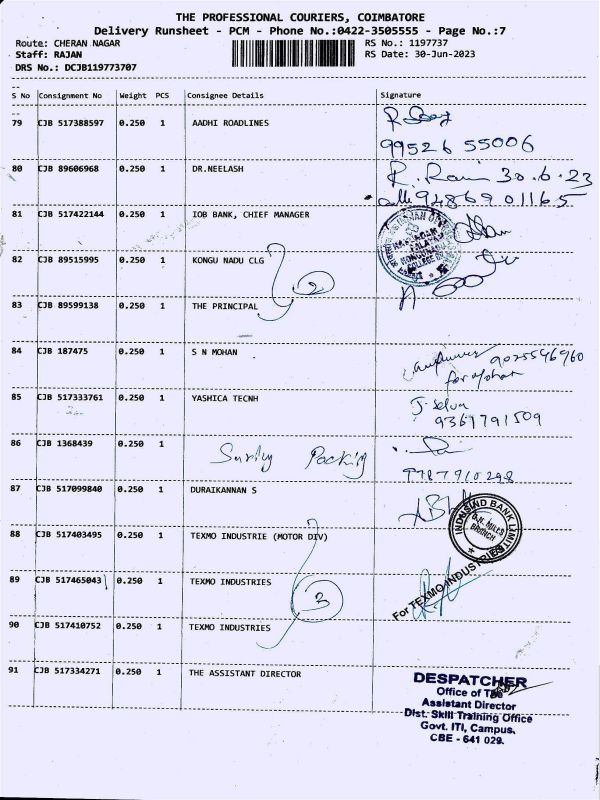 THE PROFESSIONAL COURIERS, COIMBATORE
Delivery Runsheet - PCM - Phone No.:0422-3505555 - Page No.:7
Route: CHERAN NAGAR RS No.: 1197737
Staff: RAJAN RS Date: 30-Jun-2023
DRS No.: DCJB119773707
S No Consignment No Weight PCS Consignee Details Signature
79 CJB 517388597 0.250 1 AADHI ROADLINES
99526 55006
80 CJB 89606968 0.250 1 DR.NEELASH R. Rani 30.6.23
9486901165
81 CJB 517422144 0.250 1 IOB BANK, CHIEF MANAGER
82 CJB 89515995 0.250 1 KONGU NADU CLG
2
83 CJB 89599138 0.250 1 THE PRINCIPAL
84 CJB 187475 0.250 1 S N MOHAN 9025596960
for
85 CJB 517333761 0.250 1 YASHICA TECNH J. Selva
9361791509
86 CJB 1368439 0.250 1
Packing
9787910298
87 CJB 517099840 0.250 1 DURAIKANNAN S
INDUSIND BANK LIMITED
MILLS
BRANCH
88 CJB 517403495 0.250 1 TEXMO INDUSTRIE (MOTOR DIV)
89 CJB 517465043 0.250 1 TEXMO INDUSTRIES
3
For TEXMO INDUSTRIES
90 CJB 517410752 0.250 1 TEXMO INDUSTRIES
91 CJB 517334271 0.250 1 THE ASSISTANT DIRECTOR
DESPATCHER
Office of The
Assistant Director
Dist. Skill Training Office
Govt. ITI, Campus,
CBE - 641 029.